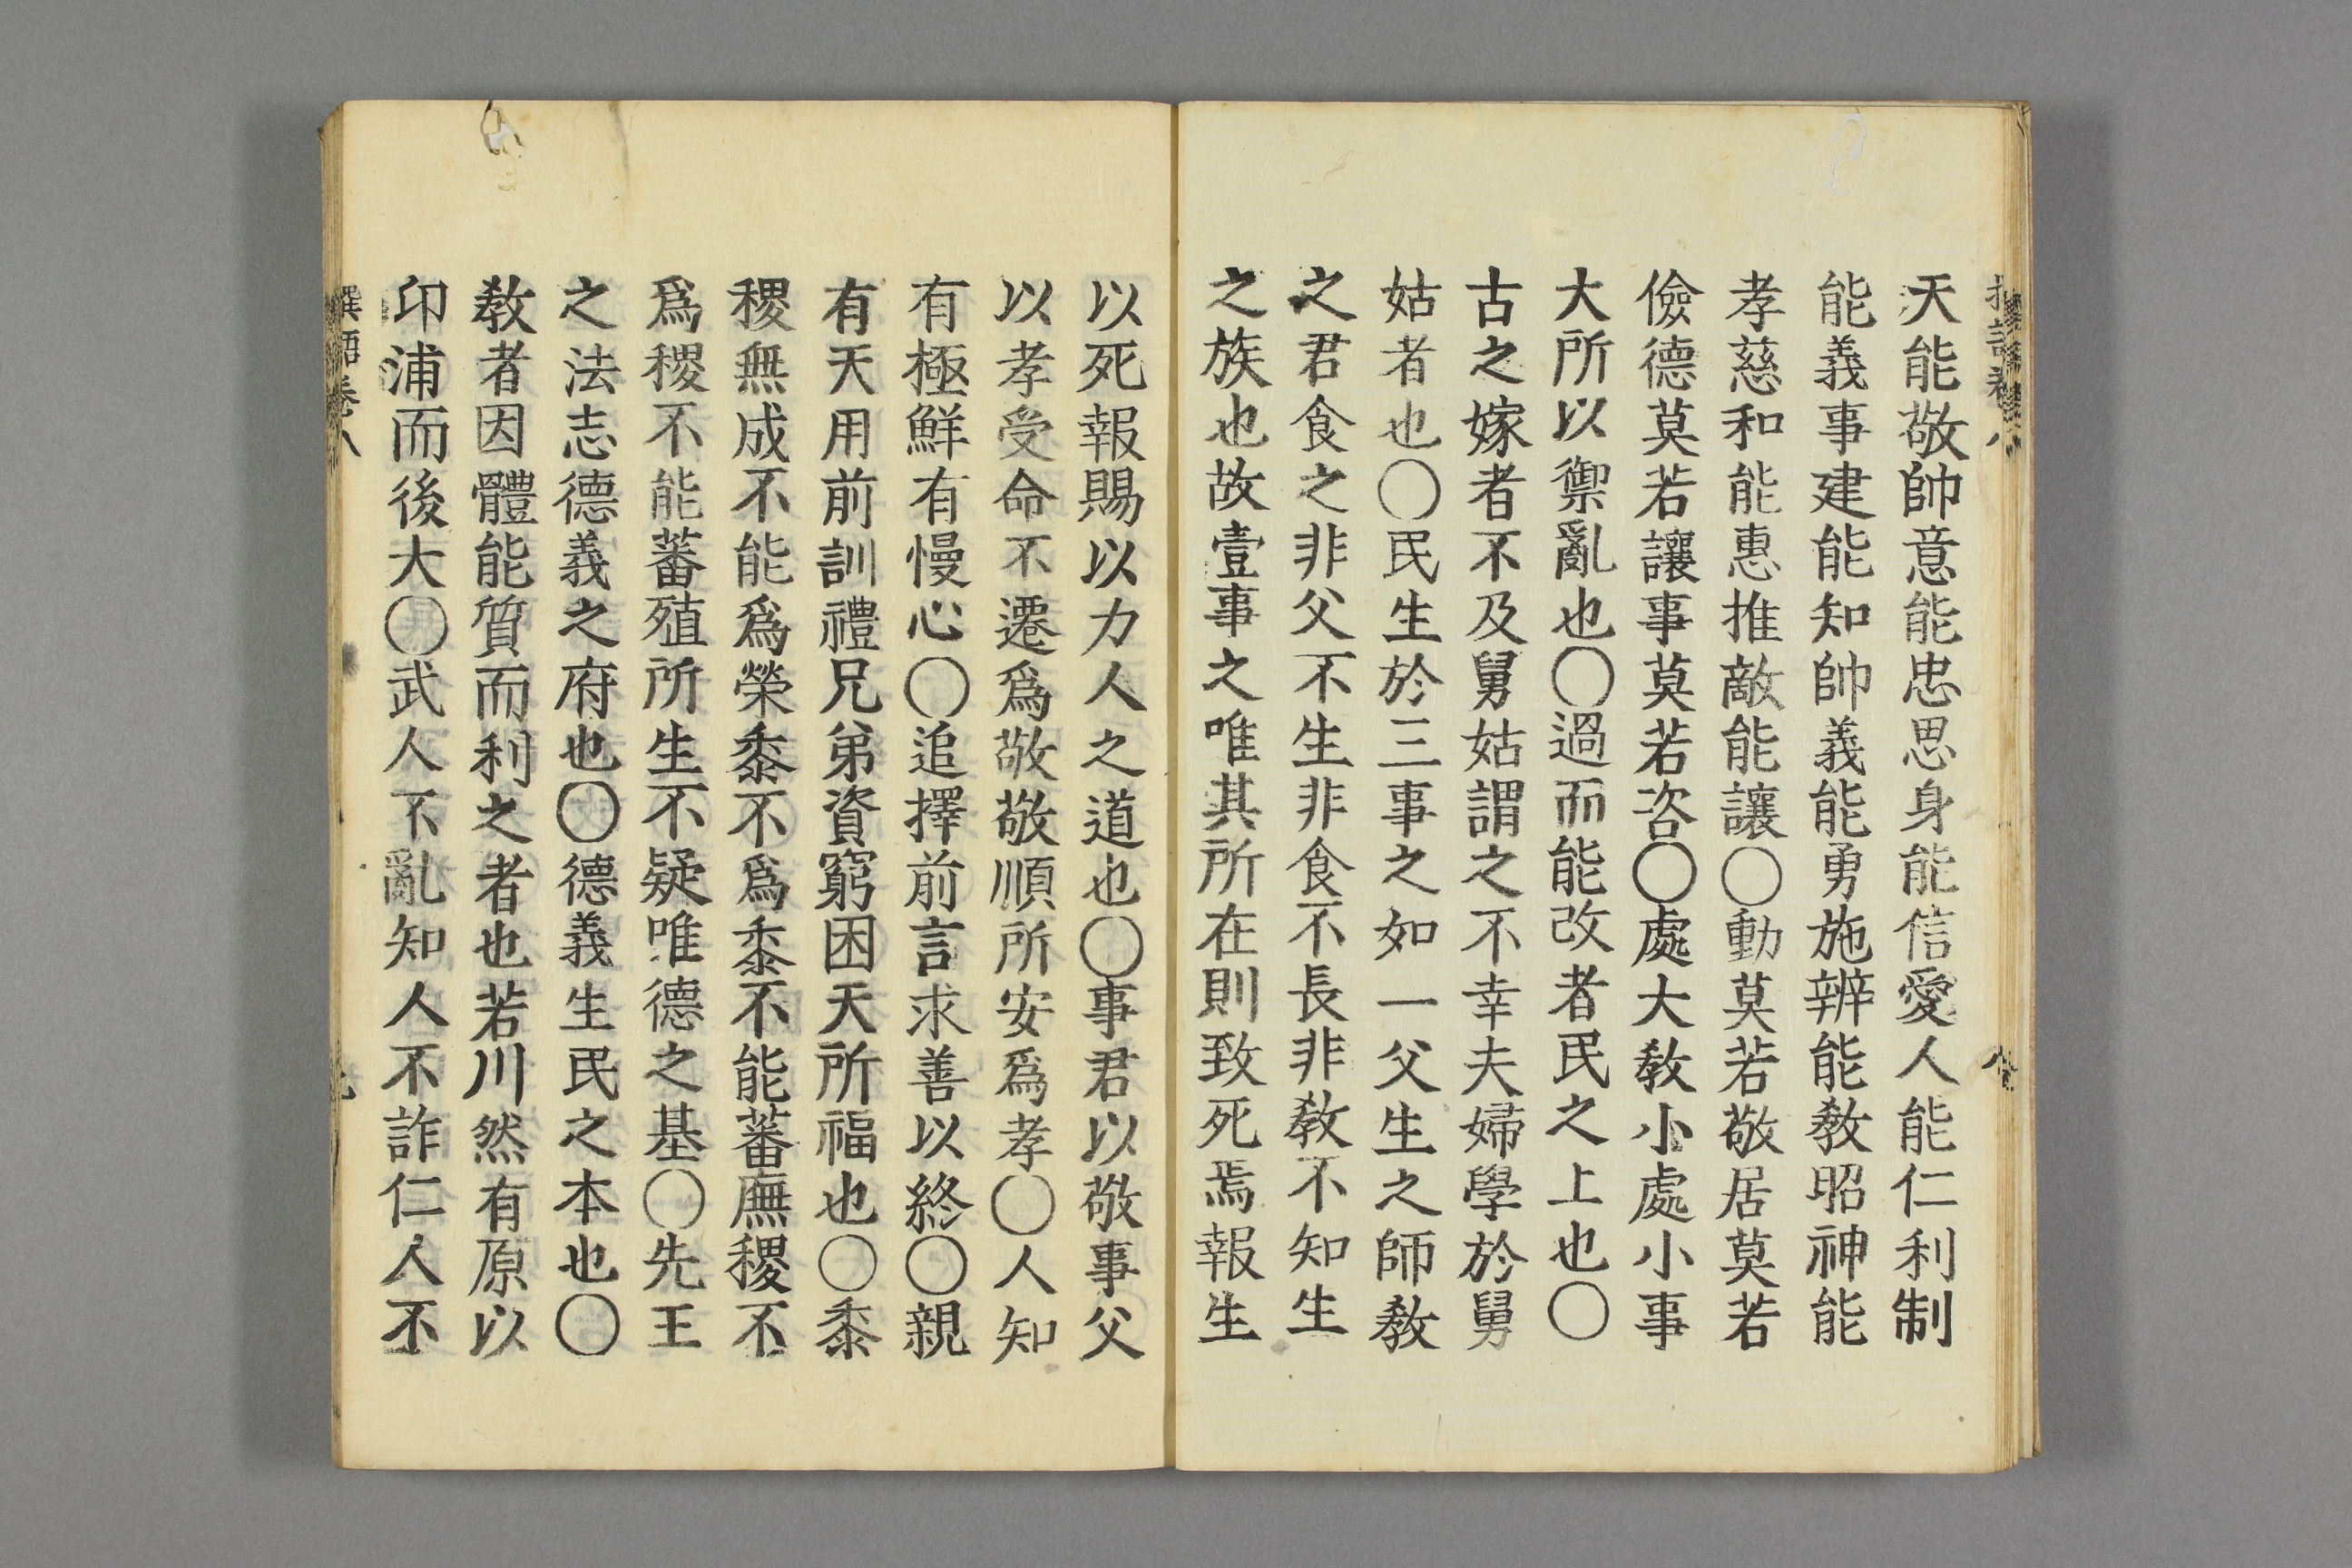 天能敬帥意能忠思身能信愛人能仁利制
能義事建能知帥義能勇施辨能敎昭神能
孝慈和能惠推敵能讓〇動莫若敬居莫若
儉德莫若讓事莫若咨〇處大敎小處小事
大所以禦亂也〇過而能改者民之上也〇
古之嫁者不及舅姑謂之不幸夫婦學於舅
姑者也〇民生於三事之如一父生之師敎
之君食之非父不生非食不長非敎不知生
之族也故壹事之唯其所在則致死焉報生
以死報賜以力人之道也〇事君以敬事父
以孝受命不遷爲敬敬順所安爲孝〇人知
有極鮮有慢心〇追擇前言求善以終〇親
有天用前訓禮兄弟資窮困天所福也〇黍
稷無成不能爲榮黍不爲黍不能蕃廡稷不
爲稷不能蕃殖所生不疑唯德之基〇先王
之法志德義之府也〇德義生民之本也〇
敎者因體能質而利之者也若川然有原以
卬浦而後大〇武人不亂知人不詐仁人不
撰語卷八